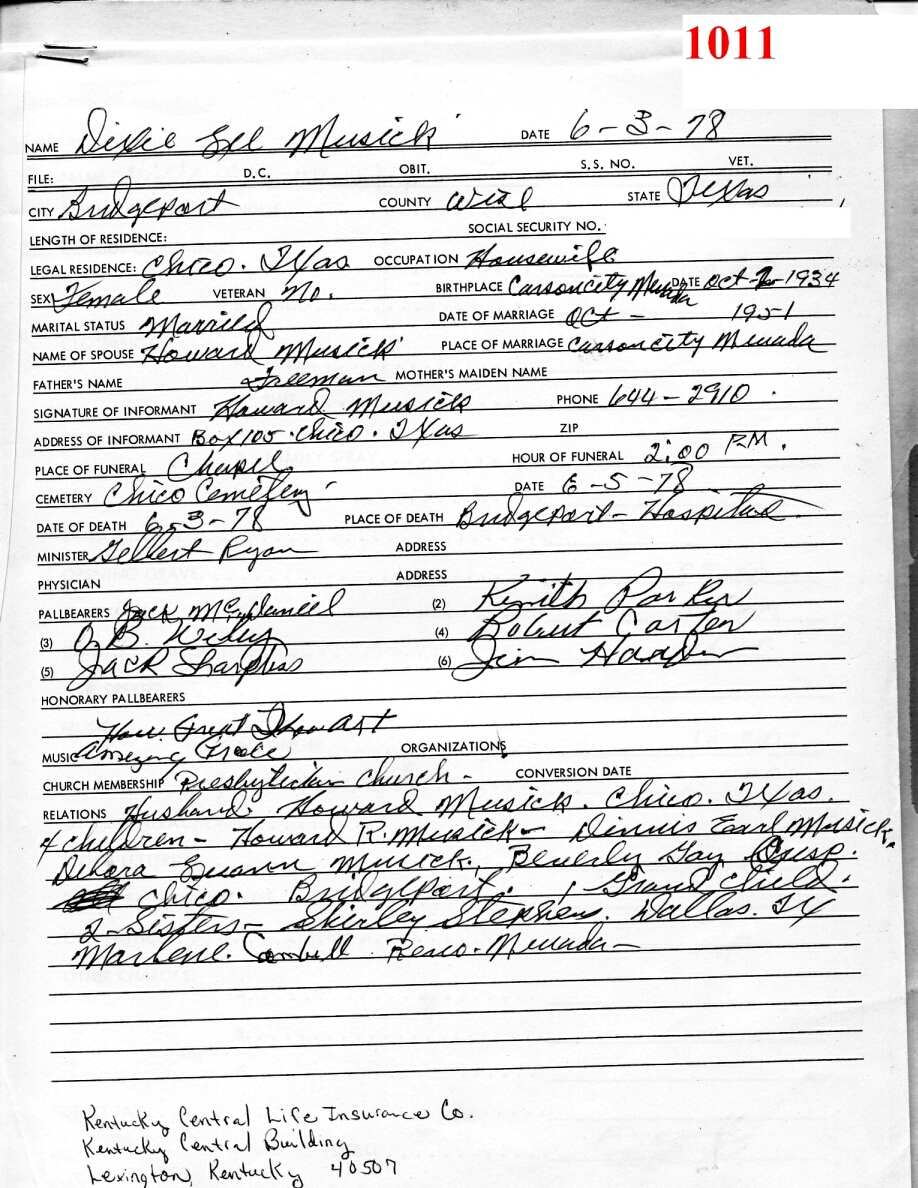 1011
NAME Dixie Lee Musick DATE 6-3-78
FILE: D.C. OBIT. S.S. NO. VET.
CITY Bridgeport COUNTY Wise STATE Texas
LENGTH OF RESIDENCE: SOCIAL SECURITY NO.
LEGAL RESIDENCE: Chico. Texas OCCUPATION Housewife
SEX Female VETERAN No. BIRTHPLACE Carson city Nevada DATE Oct 1934
MARITAL STATUS Married DATE OF MARRIAGE Oct - 1951
NAME OF SPOUSE Howard Musick PLACE OF MARRIAGE Carson city Nevada
FATHER'S NAME Freeman MOTHER'S MAIDEN NAME
SIGNATURE OF INFORMANT Howard Musick PHONE 644-2910
ADDRESS OF INFORMANT Box 105. Chico. Texas ZIP
PLACE OF FUNERAL Chapel HOUR OF FUNERAL 2:00 P.M.
CEMETERY Chico Cemetery DATE 6-5-78
DATE OF DEATH 6-3-78 PLACE OF DEATH Bridgeport-Hospital
MINISTER Gellert Ryan ADDRESS
PHYSICIAN ADDRESS
PALLBEARERS Jack McDaniel (2) Keneth Parker
(3) O.B. (4) Robert Carter
(5) Jack (6) Jim
HONORARY PALLBEARERS
How Great Thou Art
MUSIC Amazing Grace ORGANIZATIONS
CHURCH MEMBERSHIP Presbyterian Church - CONVERSION DATE
RELATIONS Husband. Howard Musick. Chico. Texas.
4 children - Howard R. Musick - Dennis Earl Musick.
Debora Musick, Beverly Gay
Chico. Bridgeport. 1 Grand child.
2-Sisters- Shirley Stephens. Dallas. TX
Marlene. Reno. Nevada-
Kentucky Central Life Insurance Co.
Kentucky Central Building
Lexington, Kentucky 40507